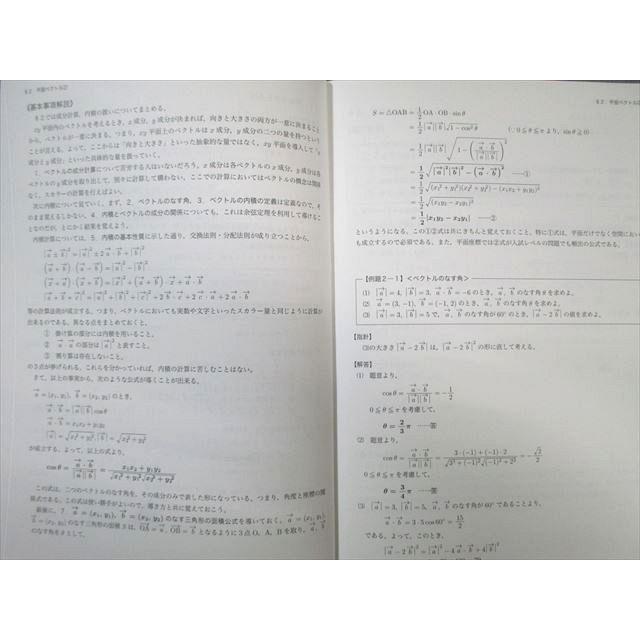 §2 平面ベクトル②
《基本事項解説》
§2では成分計算，内積の扱いについてまとめる。
xy平面内のベクトルを考えるとき，x成分，y成分が決まれば，向きと大きさの両方が一意に決まること
から，ベクトルが一意に決まる。つまり，xy平面上のベクトルはx成分，y成分の二つの量を持つという
ことが言える。よって，ここからは「向きと大きさ」といった抽象的な量ではなく，xy平面を導入して「x
成分とy成分」といった具体的な量を扱っていく。
1．ベクトルの成分計算について苦労する人はいないだろう。x成分は各ベクトルのx成分，y成分は各
ベクトルのy成分を取り出して，別々に計算して構わない。ここでの計算においてはベクトルの概念は関係
なく，スカラーの計算を行えばよい。
次に内積について見ていく。まず，2．ベクトルのなす角，3．ベクトルの内積の定義は定義なので，そ
のまま覚えるしかない。4．内積とベクトルの成分の関係についても，これは余弦定理を利用して導けるこ
となのだが，とにかく結果を覚えよう。
内積計算については，5．内積の基本性質に示した通り，交換法則・分配法則が成り立つことから，
|a⃗ ± b⃗|² = |a⃗|² ± 2 a⃗・b⃗ + |b⃗|²
(a⃗ + b⃗)・(a⃗ − b⃗) = |a⃗|² − |b⃗|²
等の計算法則が成立する。つまり，ベクトルにおいても実数や文字といったスカラー量と同じように計算が
出来るのである。異なる点をまとめておくと，
① 掛け算の部分には内積を用いること。
② a⃗・a⃗ の部分は |a⃗|² と表すこと。
③ 割り算は存在しないこと。
の3点が挙げられる。これらを分かっていれば，内積の計算に苦しむことはない。
さて，以上の事実から，次のような公式が導くことが出来る。
a⃗ = (x₁, y₁), b⃗ = (x₂, y₂) のとき，
a⃗・b⃗ = |a⃗||b⃗| cosθ
a⃗・b⃗ = x₁x₂ + y₁y₂
|a⃗| = √(x₁² + y₁²), |b⃗| = √(x₂² + y₂²)
が成立する。よって，以上の式より，
cosθ = (a⃗・b⃗)/(|a⃗||b⃗|) = (x₁x₂ + y₁y₂)/(√(x₁² + y₁²)√(x₂² + y₂²))
この式は，二つのベクトルのなす角を，その成分のみで表した形になっている。つまり，角度と座標の関
係式である。この式は使い勝手がよいので，導き方と共に覚えておこう。
最後に，7．a⃗ = (x₁, y₁), b⃗ = (x₂, y₂) のなす三角形の面積公式を導いておく。a⃗ = (x₁, y₁),
b⃗ = (x₂, y₂) のなす三角形の面積Sは，OA⃗ = a⃗, OB⃗ = b⃗ となるように3点O，A，Bを取り，a⃗, b⃗
のなす角をθとして，
§2 平面ベクトル②
S = △OAB = 1/2 OA・OB・sinθ
= 1/2 |a⃗||b⃗| √(1 − cos²θ) (∵ 0≦θ≦πより，sinθ≧0)
= 1/2 |a⃗||b⃗| √(1 − ((a⃗・b⃗)/(|a⃗||b⃗|))²)
= 1/2 √(|a⃗|²|b⃗|² − (a⃗・b⃗)²) ——①
= 1/2 √((x₁² + y₁²)(x₂² + y₂²) − (x₁x₂ + y₁y₂)²)
= 1/2 √((x₁y₂ − x₂y₁)²)
= 1/2 |x₁y₂ − x₂y₁| ——②
というようになる。この①②式は共にきちんと覚えておくこと。特に①式は，平面だけでなく空間におい
も成立するので必須である。また，平面座標では②式が入試レベルの問題でも頻出の公式である。
【例題2－1】＜ベクトルのなす角＞
(1) |a⃗| = 4, |b⃗| = 3, a⃗・b⃗ = −6 のとき，a⃗, b⃗ のなす角θを求めよ。
(2) a⃗ = (3, −1), b⃗ = (−1, 2) のとき，a⃗, b⃗ のなす角θを求めよ。
(3) |a⃗| = 3, |b⃗| = 5 で，a⃗, b⃗ のなす角が60°のとき，|a⃗ − 2b⃗| の値を求めよ。
【指針】
(3)の大きさ |a⃗ − 2b⃗| は，|a⃗ − 2b⃗|² の形に直して考える。
【解答】
(1) 題意より，
cosθ = (a⃗・b⃗)/(|a⃗||b⃗|) = −1/2
0≦θ≦πを考慮して，
θ = 2/3 π ……答
(2) 題意より，
cosθ = (a⃗・b⃗)/(|a⃗||b⃗|) = (3・(−1) + (−1)・2)/(√(3² + (−1)²)√((−1)² + 2²)) = −√2/2
0≦θ≦πを考慮して，
θ = 3/4 π ……答
(3) |a⃗| = 3, |b⃗| = 5, a⃗, b⃗ のなす角が60°であることより，
a⃗・b⃗ = 3・5 cos60° = 15/2
である。よって，このとき，
|a⃗ − 2b⃗|² = |a⃗|² − 4 a⃗・b⃗ + 4|b⃗|²